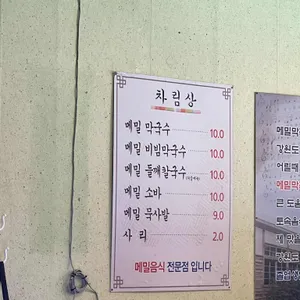 차림상
메밀 막국수 10.0
메밀 비빔막국수 10.0
메밀 들깨칼국수 10.0
메밀 소바 10.0
메밀 묵사발 9.0
사 리 2.0
메밀음식 전문점 입니다
메밀막
강원도
어릴때
메밀막
큰 도움
토속음
제 맛을
강원도
즐겁